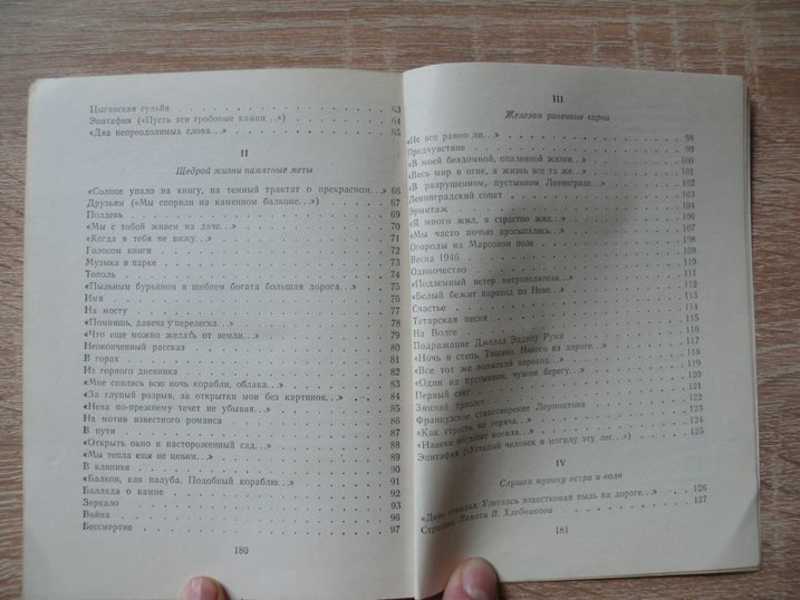 Цыганская гульба . . . 63
Эпитафия («Пусть эти гробовые камни...») . . . 64
«Два непреодолимых слова...» . . . 65
II
Щедрой жизни памятные меты
«Солнце упало на книгу, на темный трактат о прекрасном...» 66
Друзьям («Мы спорили на каменном балконе...») . . . 67
Полдень . . . 69
«Мы с тобой живем на даче...» . . . 70
«Когда я тебя не вижу...» . . . 71
Голосом книги . . . 72
Музыка в парке . . . 73
Тополь . . . 74
«Пыльным бурьяном и щебнем богата большая дорога...» . . . 75
Имя . . . 76
На мосту . . . 77
«Помнишь, давеча у перелеска...» . . . 78
«Что еще можно желать от земли...» . . . 79
Неоконченный рассказ . . . 80
В горах . . . 81
Из горного дневника . . . 82
«Мне снились всю ночь корабли, облака...» . . . 83
«За глупый разрыв, за открытки мои без картинок...» . . . 84
«Нева по-прежнему течет не убывая...» . . . 85
На мотив известного романса . . . 86
В пути . . . 87
«Открыть окно в настороженный сад...» . . . 88
«Мы тепла еще не ценим...» . . . 89
В клинике . . . 90
«Балкон, как палуба. Подобный кораблю...» . . . 91
Баллада о камне . . . 92
Зеркало . . . 93
Война . . . 96
Бессмертие . . . 97
180
III
Железом раненные корни
«Не все равно ли...» . . . 98
Предчувствие . . . 99
«В моей бездомной, опаленной жизни...» . . . 100
«Весь мир в огне, а жизнь все та же...» . . . 101
«В разрушенном, пустынном Ленинграде...» . . . 102
Ленинградский сонет . . . 103
Эрмитаж . . . 104
«Я много жил, я страстно жил...» . . . 106
«Мы часто ночью просыпались...» . . . 107
Огороды на Марсовом поле . . . 108
Весна 1946 . . . 109
Одиночество . . . 110
«Подземный ветер . . . 111
«Белый бежит пароход по Неве...» . . . 112
Счастье . . . 113
Татарская песня . . . 114
На Волге . . . 115
Подражание Джелал Эддину Руми . . . 116
«Ночь и степь. Тишина. Никого на дороге...» . . . 117
«Все тот же волжский пароход...» . . . 118
«Один на пустынном, чужом берегу...» . . . 119
Первый снег . . . 121
Зимний триолет . . . 122
Французское стихотворение Лермонтова . . . 123
«Как страсть ни горяча...» . . . 124
. . . 125
Эпитафия («Усталый человек в могилу эту лег...»)
IV
Слушая музыку ветра и волн
Улеглась известковая пыль на дороге...» . . . 126
Памяти В. Хлебникова . . . 127
181